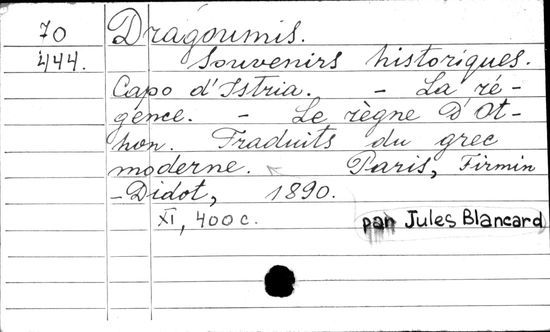 70 Dragoumis.
444. Souvenirs historiques.
Capo d'Istria. - La ré-
gence. - Le règne D'Ot-
hon. Traduits du grec
moderne. Paris, Firmin
-Didot, 1890.
XI, 400 c. par Jules Blancard